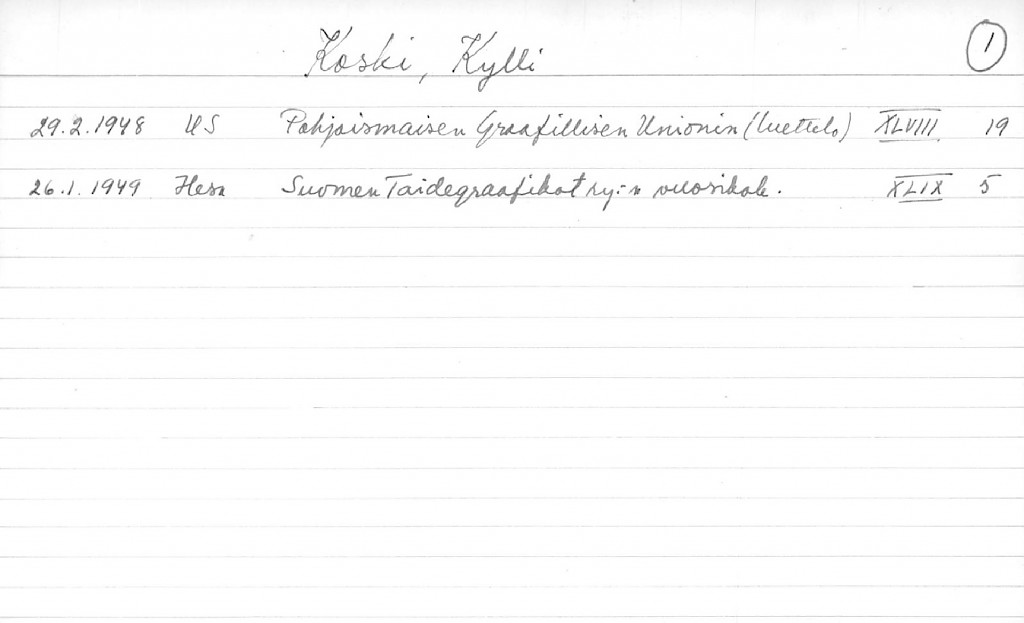 Koski, Kylli 1
29.2.1948 US Pohjoismaisen Graafillisen Unionin (luettelo) XLVIII 19
26.1.1949 Hesa Suomen Taidegraafikot ry:n vuosikok. XLIX 5